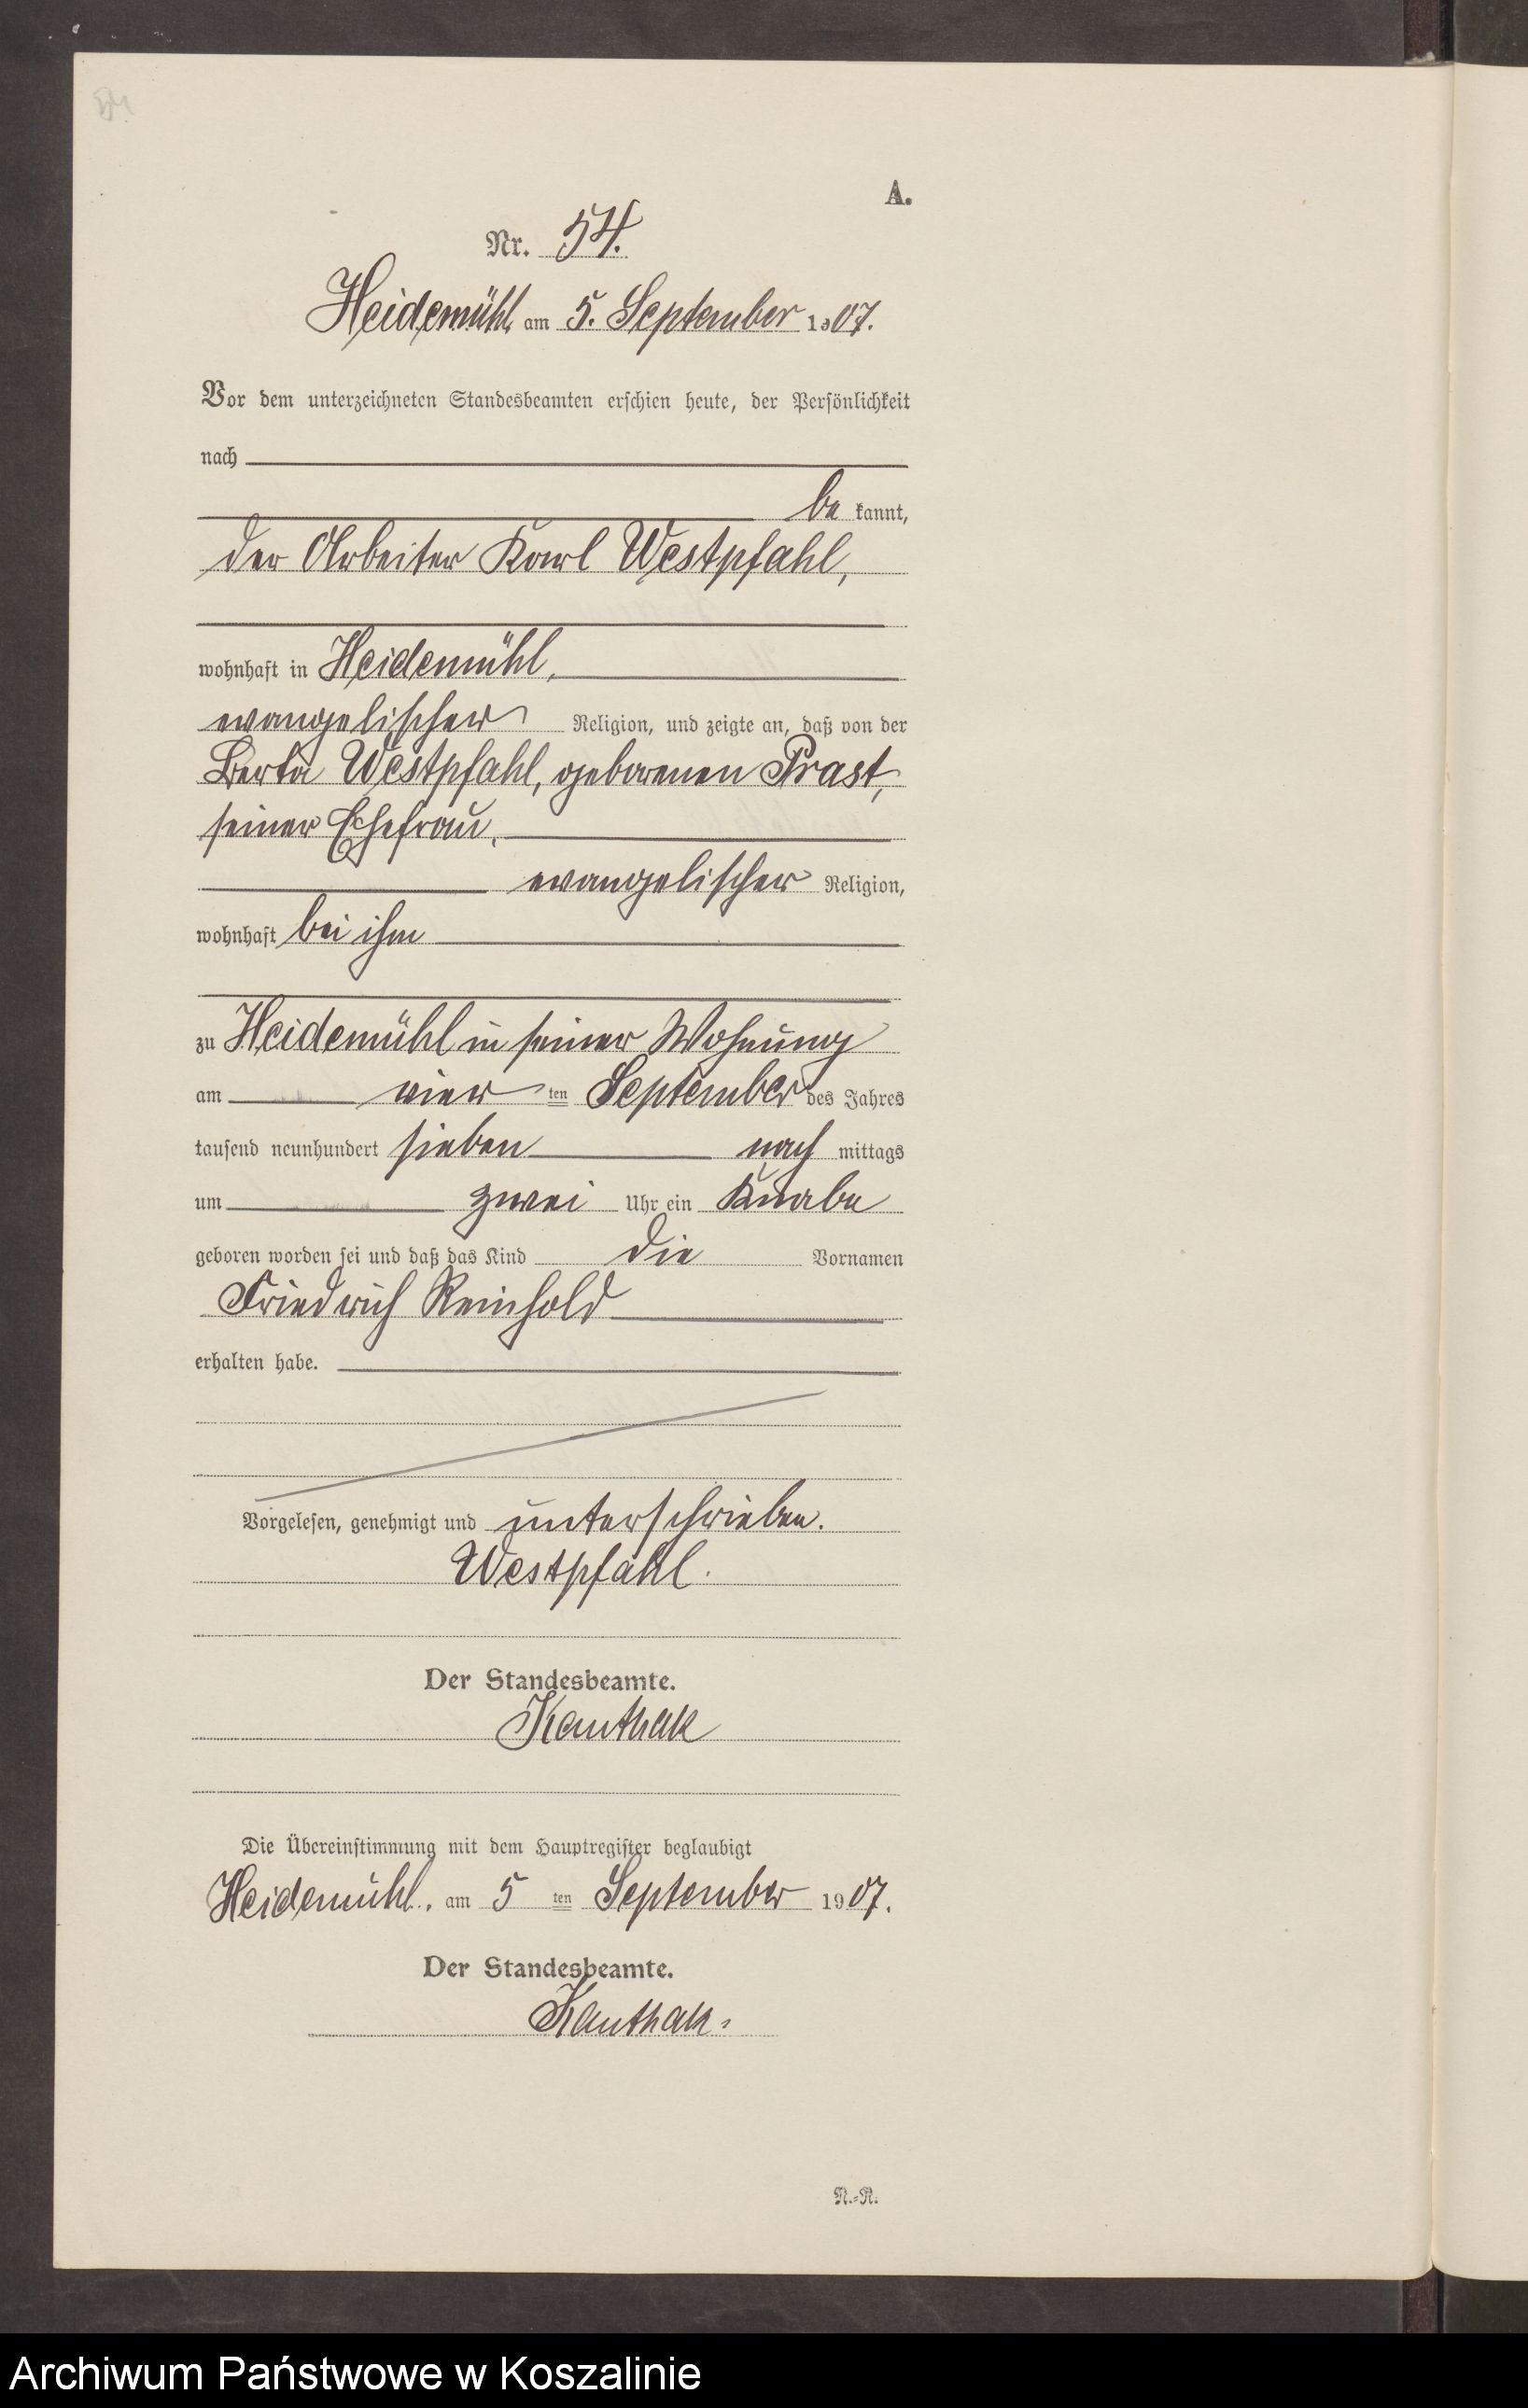 A.
Nr. 54.
Heidemühl, am 5. September 1907.
Vor dem unterzeichneten Standesbeamten erschien heute, der Persönlichkeit
nach
be kannt,
der Arbeiter Karl Westpfahl,
wohnhaft in Heidemühl,
evangelischer Religion, und zeigte an, daß von der
Berta Westpfahl, geborenen Prast,
seiner Ehefrau,
evangelischer Religion,
wohnhaft bei ihm
zu Heidemühl in seiner Wohnung
am vier ten September des Jahres
tausend neunhundert sieben nach mittags
um zwei Uhr ein Knabe
geboren worden sei und daß das Kind die Vornamen
Friedrich Reinhold
erhalten habe.
Vorgelesen, genehmigt und unterschrieben.
Westpfahl.
Der Standesbeamte.
Kauthak
Die Übereinstimmung mit dem Hauptregister beglaubigt
Heidemühl, am 5 ten September 1907.
Der Standesbeamte.
Kauthak.
N.-R.
Archiwum Państwowe w Koszalinie